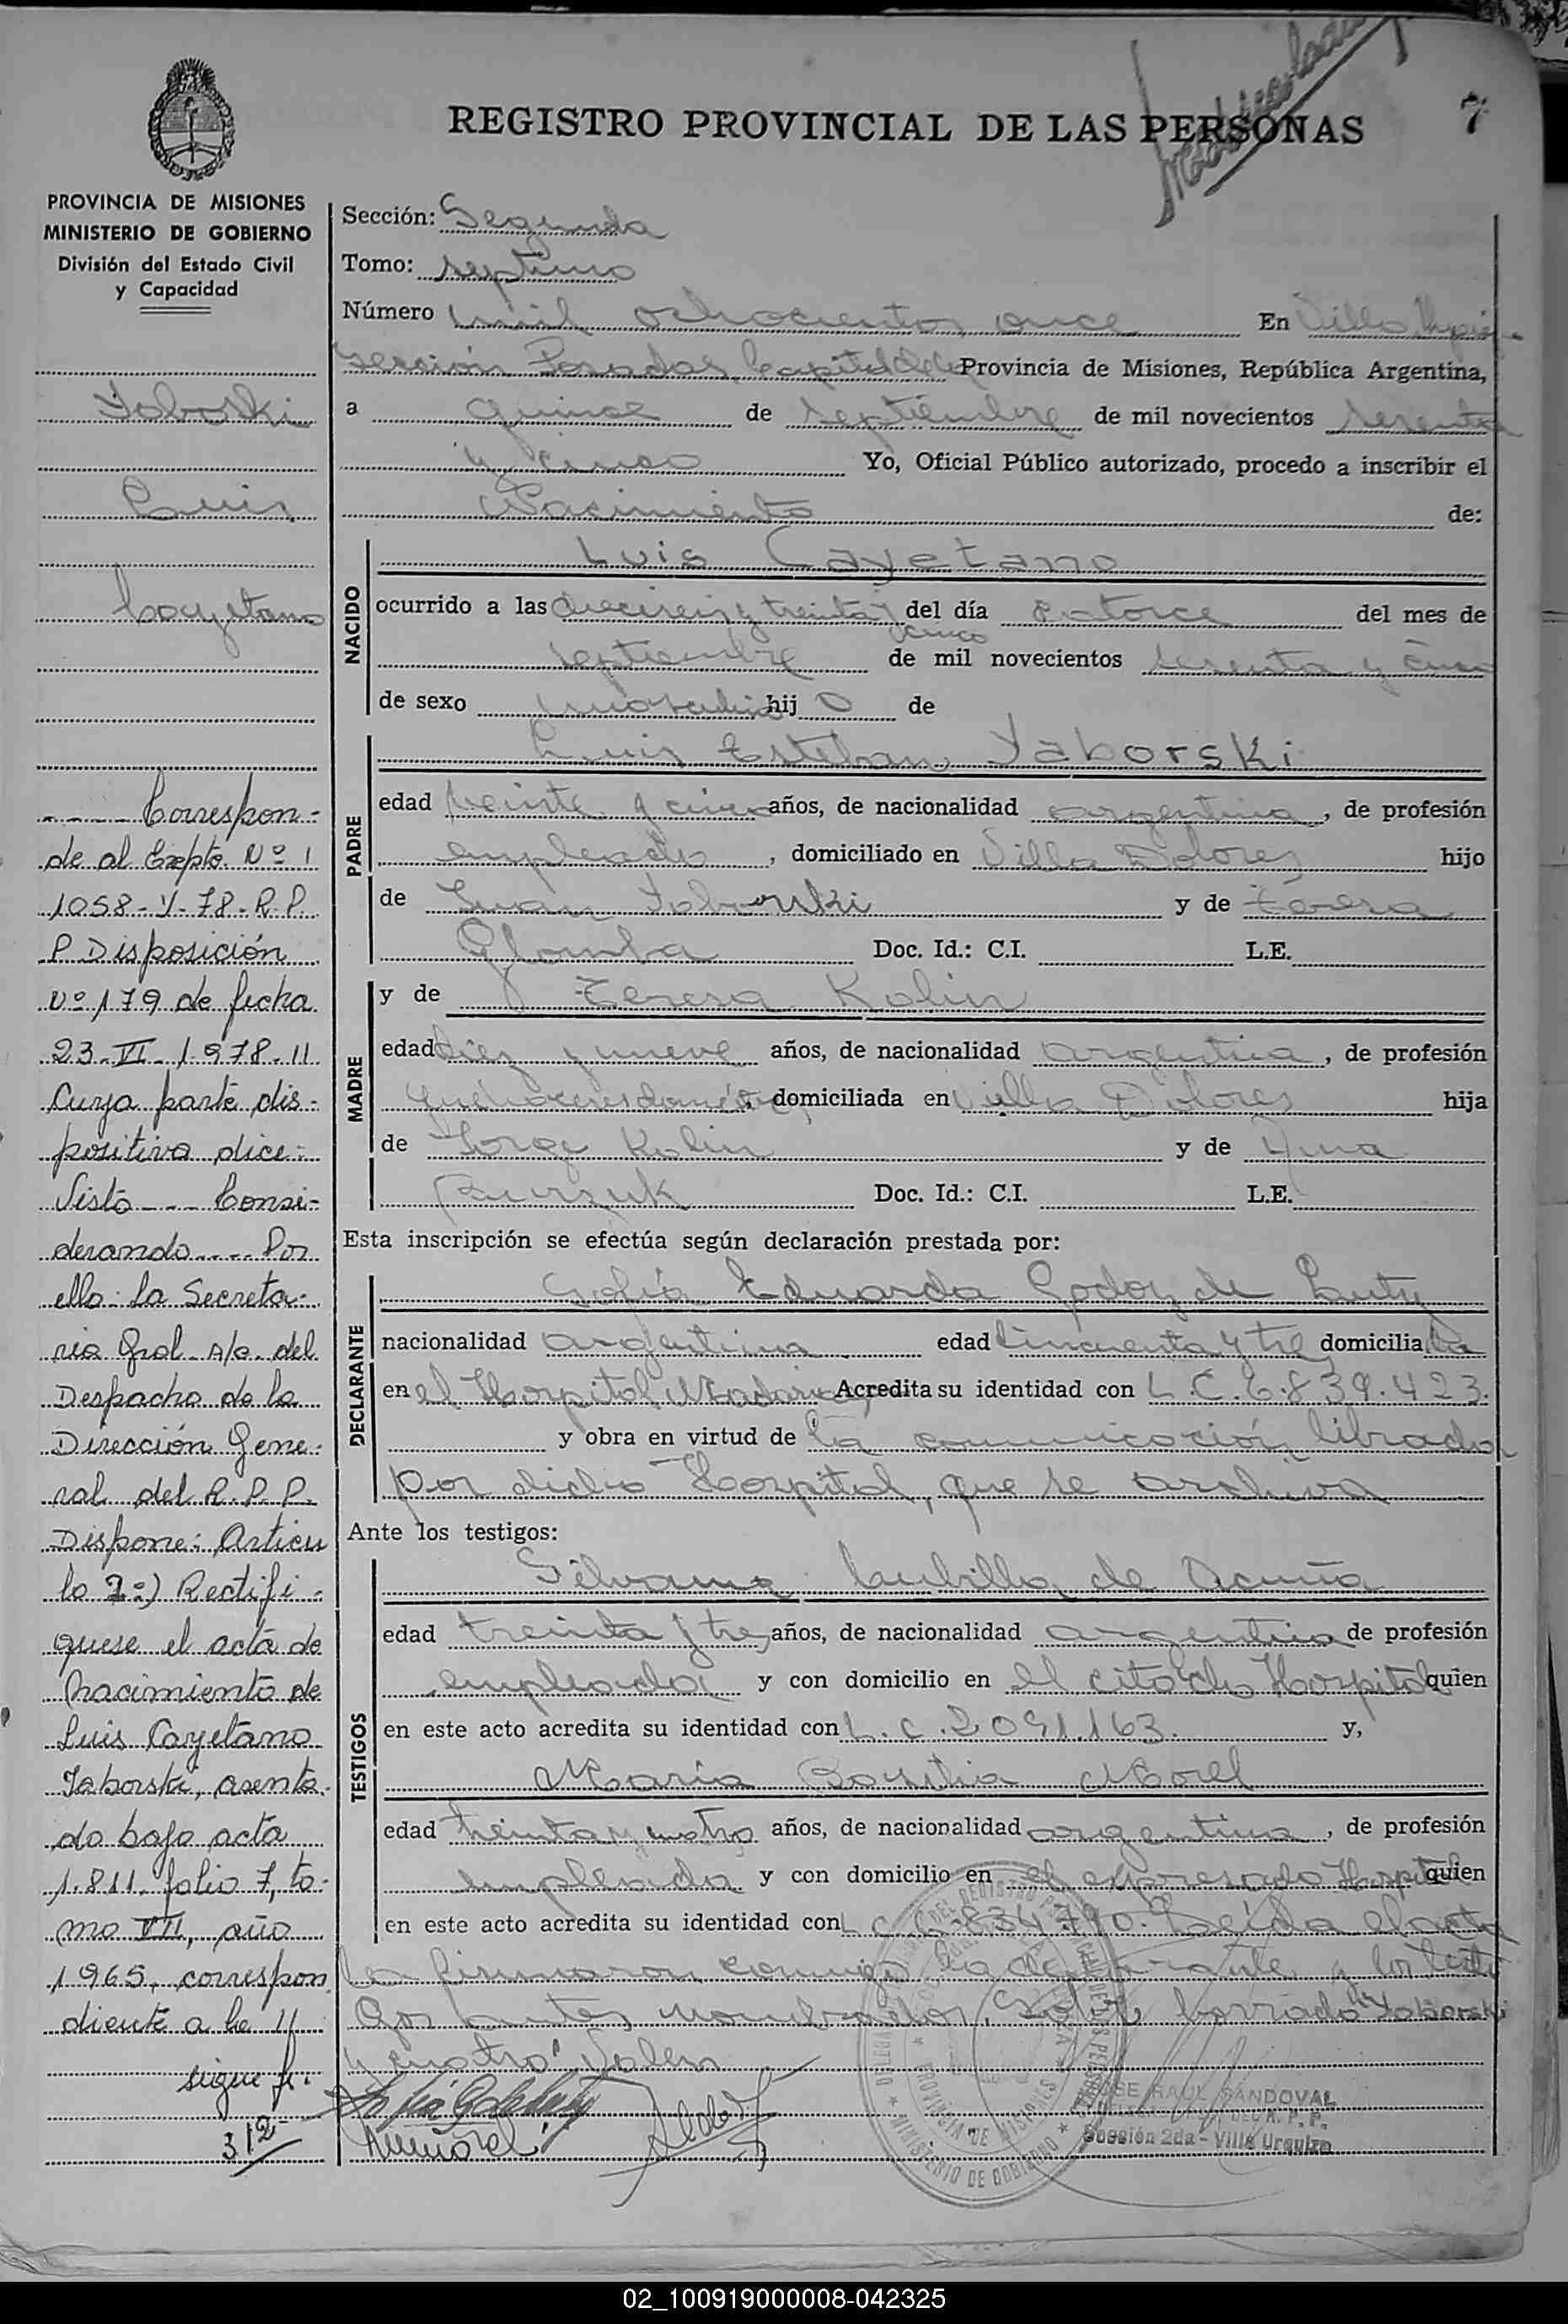 REGISTRO PROVINCIAL DE LAS PERSONAS
7
PROVINCIA DE MISIONES
MINISTERIO DE GOBIERNO
División del Estado Civil
y Capacidad
Sección: Segunda
Tomo: septimo
Número mil ochocientos once En Villa
Sección Posadas, Capital de la Provincia de Misiones, República Argentina,
a quince de septiembre de mil novecientos sesenta
y cinco Yo, Oficial Público autorizado, procedo a inscribir el
Nacimiento de:
NACIDO
Luis Cayetano
ocurrido a las dieciseis y treinta y cinco del día catorce del mes de
septiembre de mil novecientos sesenta y cinco
de sexo masculino hij o de
PADRE
Luis Esteban Yaborski
edad veinte y cinco años, de nacionalidad argentina, de profesión
empleado, domiciliado en Villa Dolores hijo
de Juan Yaborski y de Teresa
Glomba Doc. Id.: C.I. L.E.
MADRE
y de Teresa Kolin
edad diez y nueve años, de nacionalidad argentina, de profesión
quehaceres domésticos, domiciliada en Villa Dolores hija
de Jorge Kolin y de Ana
Doc. Id.: C.I. L.E.
Esta inscripción se efectúa según declaración prestada por:
DECLARANTE
Sofía Eduarda Godoy de
nacionalidad argentina edad cincuenta y tres domicilia da
en el Hospital Madariaga Acredita su identidad con L.C. 6.839.423.
y obra en virtud de la comunicación librada
por dicho Hospital, que se archiva
Ante los testigos:
TESTIGOS
Silvana Cubilla de Acuña
edad treinta y tres años, de nacionalidad argentina de profesión
empleada y con domicilio en el citado Hospital quien
en este acto acredita su identidad con L.C. 2.091.163. y,
María Morel
edad treinta y cuatro años, de nacionalidad argentina, de profesión
empleada y con domicilio en el expresado Hospital quien
en este acto acredita su identidad con L.C. 6.834.790. Leída el acta
la firmaron conmigo la declarante y los testi
gos antes nombrados. Sobre borrado "Yaborski
y cuatro" Valen
JOSE RAUL SANDOVAL
R. P. P.
Sección 2da - Villa Urquiza
MINISTERIO DE GOBIERNO
PROVINCIA DE MISIONES
Yaborski
Luis
Cayetano
---- Correspon-
de al Expte. Nº 1
1058-Y-78-R.P.
P Disposición
Nº 179 de fecha
23-VI-1978-11
Cuya parte dis-
positiva dice:
Visto --- Consi-
derando ---- Por
ello: la Secreta-
ria Gral. A/c. del
Despacho de la
Dirección Gene-
ral del R.P.P.
Dispone: Articu
lo 1º) Rectifi-
quese el acta de
nacimiento de
Luis Cayetano
Yaborski, asenta-
do bajo acta
1.811, folio 7, to-
mo VII, año
1965, correspon
diente a la 11
sigue fº.
312
02_100919000008-042325